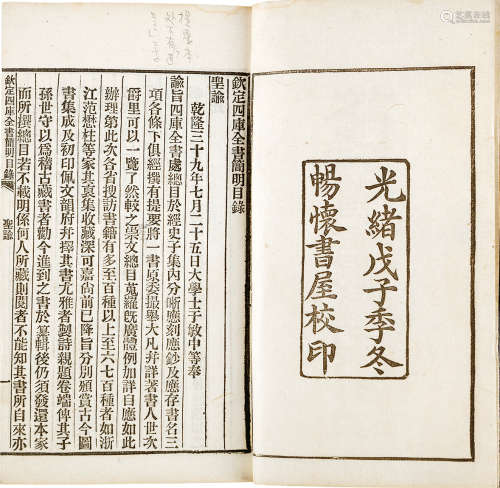 光緒戊子季冬
暢懷書屋校印
欽定四庫全書簡明目錄
聖諭
乾隆三十九年七月二十五日大學士于敏中等奉
諭旨四庫全書處總目於經史子集內分晰應刻應鈔及應存書名三
項各條下俱經撰有提要將一書原委撮舉大凡幷詳著書人世次
爵里可以一覽了然較之崇文總目蒐羅旣廣體例加詳自應如此
辦理第此次各省搜訪書籍有多至百種以上至六七百種者如浙
江范懋柱等家其裒集收藏深可嘉尙前已降旨分別頒賞古今圖
書集成及初印佩文韻府幷擇其書尤雅者製詩親題卷端俾其子
孫世守以爲稽古藏書者勸今進到之書於纂輯後仍須發還本家
而所撰總目若不載明係何人所藏則閱者不能知其書所自來亦
欽定四庫全書簡明目錄
聖諭